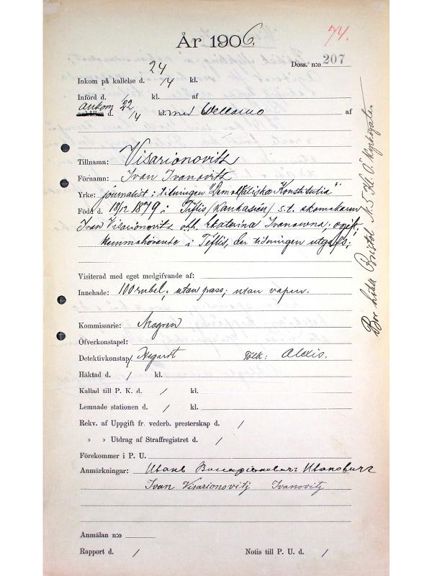 74.
År 1906.
Doss. n:o 207
Inkom på kallelse d. 24/4 kl.
Införd d. / kl. af
ankom d. 22/4 kl. med Wellamo af
Tillnamn: Visarionovitz
Förnamn: Ivan Ivanovitz
Yrke: journalist i tidningen "Demokratiska Konstitutia"
Född d. 19/12 1879 i Tiflis (Kaukasien) s.t. skomakaren
Ivan Visarionovitz och Ekaterina Ivanovna; ogift;
hemmahörande i Tiflis, der tidningen utgafs;
Visiterad med eget medgifvande af:
Innehade: 100 rubel, utan pass; utan vapen.
Kommissarie: Mogren
Öfverkonstapel:
Detektivkonstap: Tolk: Alexis.
Häktad d. / kl.
Kallad till P. K. d. / kl.
Lemnade stationen d. / kl.
Rekv. af Uppgift fr. vederb. presterskap d. /
» » Utdrag af Straffregistret d. /
Förekommer i P. U.
Anmärkningar:
Ivan Visarionovitj Ivanovitj
Anmälan n:o
Rapport d. / Notis till P. U. d. /
Bor Hotel Bristol N:o 5